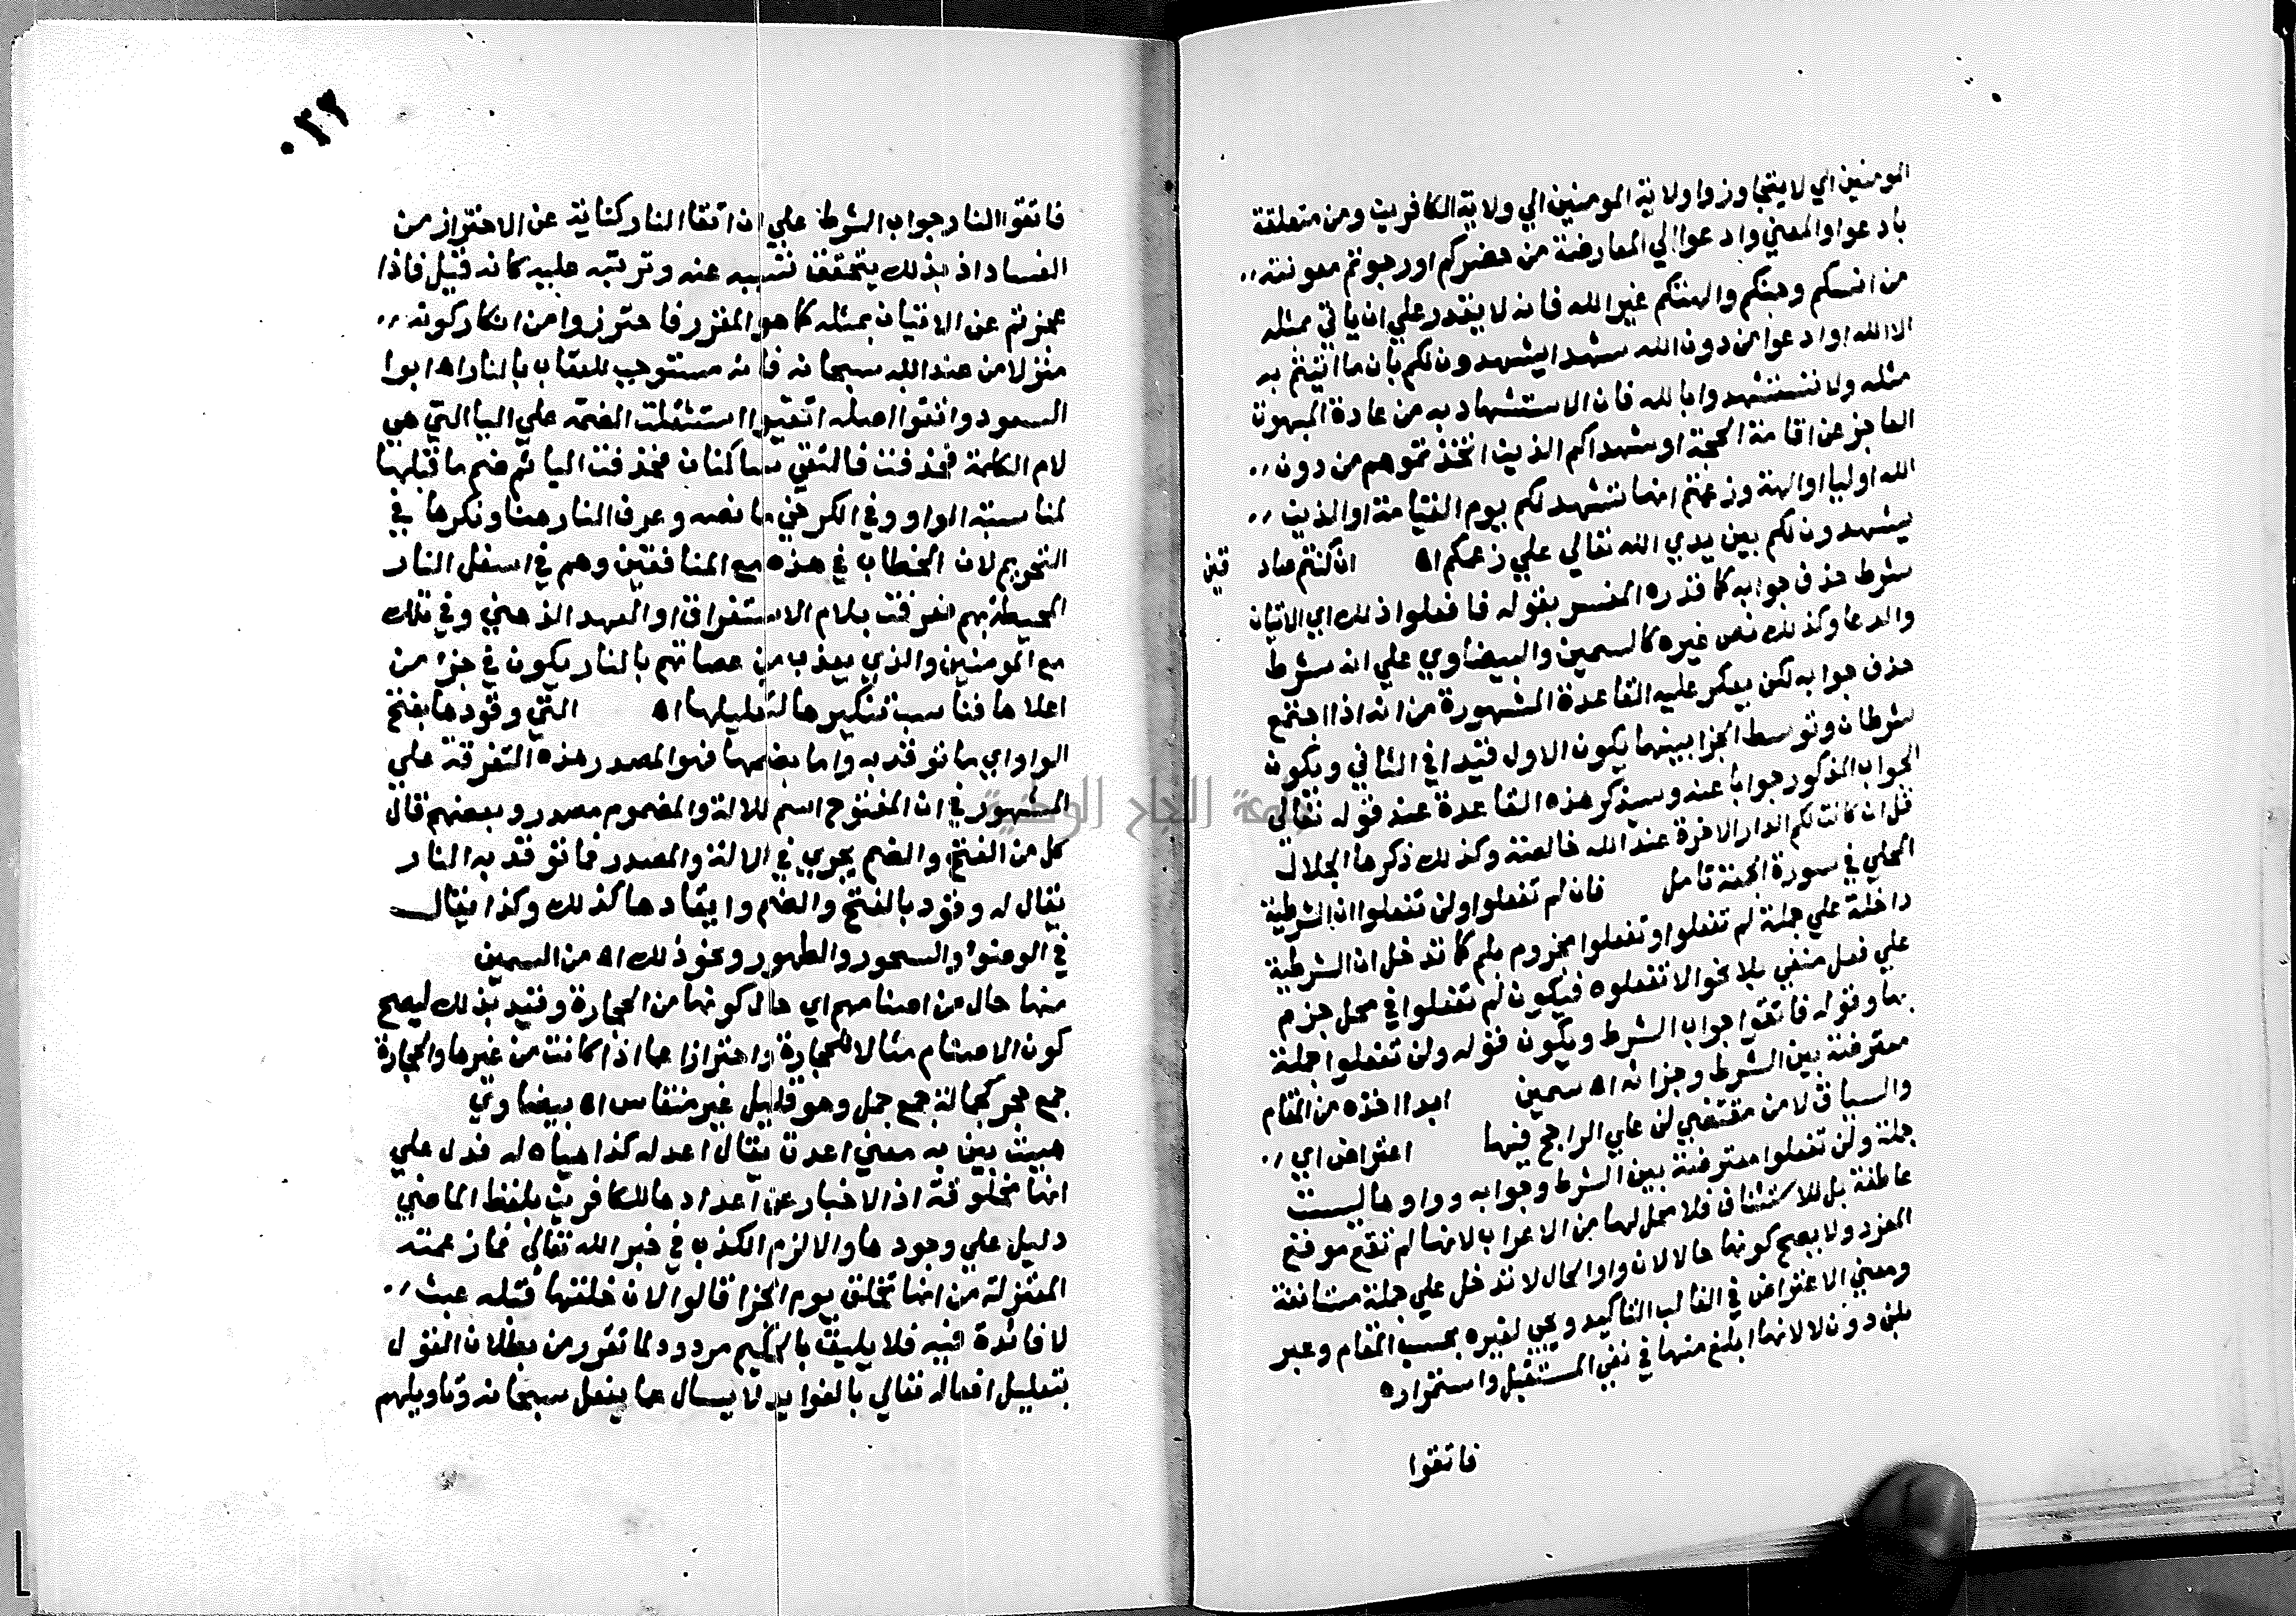 المومنين اي لا يتجاوزوا ولاية المومنين الي ولاية الكافرين ومن متعلقة
بادعوا والمعني وادعوا الي المعارضة من حضركم او رجوتم معونته
من انسكم وجنكم والهتكم غير الله فانه لا يقدر علي ان ياتي بمثله
الا الله او ادعوا من دون الله شهدا يشهدون لكم بان ما اتيتم به
مثله ولا تستشهدوا بالله فان الاستشهاد به من عادة المبهوت
العاجز عن اقامة الحجة او شهداكم الذين اتخذتموهم من دون
الله اوليا او الهة وزعمتم انها تشهد لكم يوم القيامة او الذين
يشهدون لكم بين يدي الله تعالي علي زعمكم اه ان كنتم صادقين
شرط حذف جوابه كما قدره المفسر بقوله فافعلوا ذلك اي الاتيان
والدعا وكذلك نص غيره كالسمين والبيضاوي علي انه شرط
حذف جوابه لكن يعكر عليه القاعدة المشهورة من انه اذا اجتمع
شرطان وتوسط الجزا بينهما يكون الاول قيدا في الثاني ويكون
الجواب المذكور جوابا عنه وسيذكر هذه القاعدة عند قوله تعالي
قل ان كانت لكم الدار الاخرة عند الله خالصة وكذلك ذكرها الجلال
المحلي في سورة الجمعة تامل فان لم تفعلوا ولن تفعلوا ان الشرطية
داخلة علي جملة لم تفعلوا وتفعلوا مجزوم بلم كما تدخل ان الشرطية
علي فعل منفي بلا نحو الا تفعلوه فيكون لم تفعلوا في محل جزم
بها وقوله فاتقوا جواب الشرط ويكون قوله ولن تفعلوا جملة
معترضة بين الشرط وجزائه اه سمين ابدا اخذه من المقام
والسياق لا من مقتضي لن علي الراجح فيها اعتراض اي
جملة ولن تفعلوا معترضة بين الشرط وجوابه وواوها ليست
عاطفة بل للاستئناف فلا محل لها من الاعراب لانها لم تقع موقع
المفرد ولا يصح كونها حالا لان واو الحال لا تدخل علي جملة مستانفة
ومعني الاعتراض في الغالب التاكيد ويجي لغيره بحسب المقام وعبر
بلن دون لا لانها ابلغ منها في نفي المستقبل واستمراره
فاتقوا
٠٣٢
فاتقوا النار جواب الشرط علي ان اتقا النار كناية عن الاحتراز من
الفساد اذ بذلك يتحقق تسببه عنه وترتبه عليه كانه قيل فاذا
عجزتم عن الاتيان بمثله كما هو المقرر فاحترزوا من انكار كونه
منزلا من عند الله سبحانه فانه مستوجب للعقاب بالنار اه ابوا
السعود واتقوا اصله اتقيوا استثقلت الضمة علي اليا التي هي
لام الكلمة فحذفت فالتقي ساكنان فحذفت اليا ثم ضم ما قبلها
لمناسبة الواو وفي الكرخي ما نصه وعرف النار هنا ونكرها في
التحريم لان الخطاب في هذه مع المنافقين وهم في اسفل النار
المحيطة بهم فعرفت بلام الاستغراق او العهد الذهني وفي تلك
مع المومنين والذي يعذب من عصاتهم بالنار يكون في جزء من
اعلاها فناسب تنكيرها لتقليلها اه التي وقودها بفتح
الواو اي ما توقد به واما بضمها فهو المصدر هذه التفرقة علي
المشهور في ان المفتوح اسم للالة والمضموم مصدر وبعضهم قال
كل من الفتح والضم يجري في الالة والمصدر فما توقد به النار
يقال له وقود بالفتح والضم وايقادها كذلك وكذا يقال
في الوضوء والسحور والطهور ونحو ذلك اه من السمين
منها حال من اصنامهم اي حال كونها من الحجارة وقيد بذلك ليصح
كون الاصنام مثالا للحجارة واحترازا عما اذا كانت من غيرها والحجارة
جمع حجر كجمالة جمع جمل وهو قليل غير منقاس اه بيضاوي
هيئت بين به معني اعدت يقال اعد له كذا هياه له فدل علي
انها مخلوقة اذ الاخبار عن اعدادها للكافرين بلفظ الماضي
دليل علي وجودها والا لزم الكذب في خبر الله تعالي فما زعمته
المعتزلة من انها تخلق يوم الجزا قالوا لان خلقها قبله عبث
لا فائدة فيه فلا يليق بالحكيم مردود لما تقرر من بطلان القول
بتعليل افعاله تعالي بالفوايد لا يسال عما يفعل سبحانه وتاويلهم